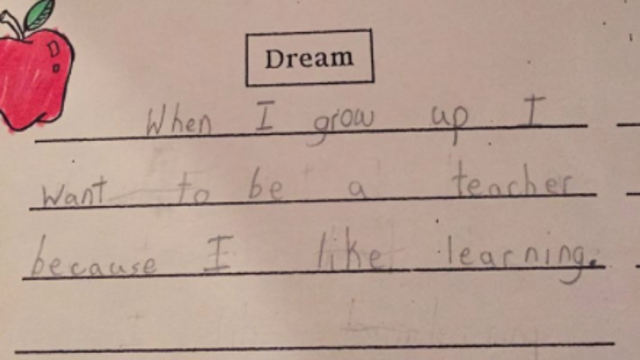 Dream
When I grow up I
want to be a teacher
because I like learning.